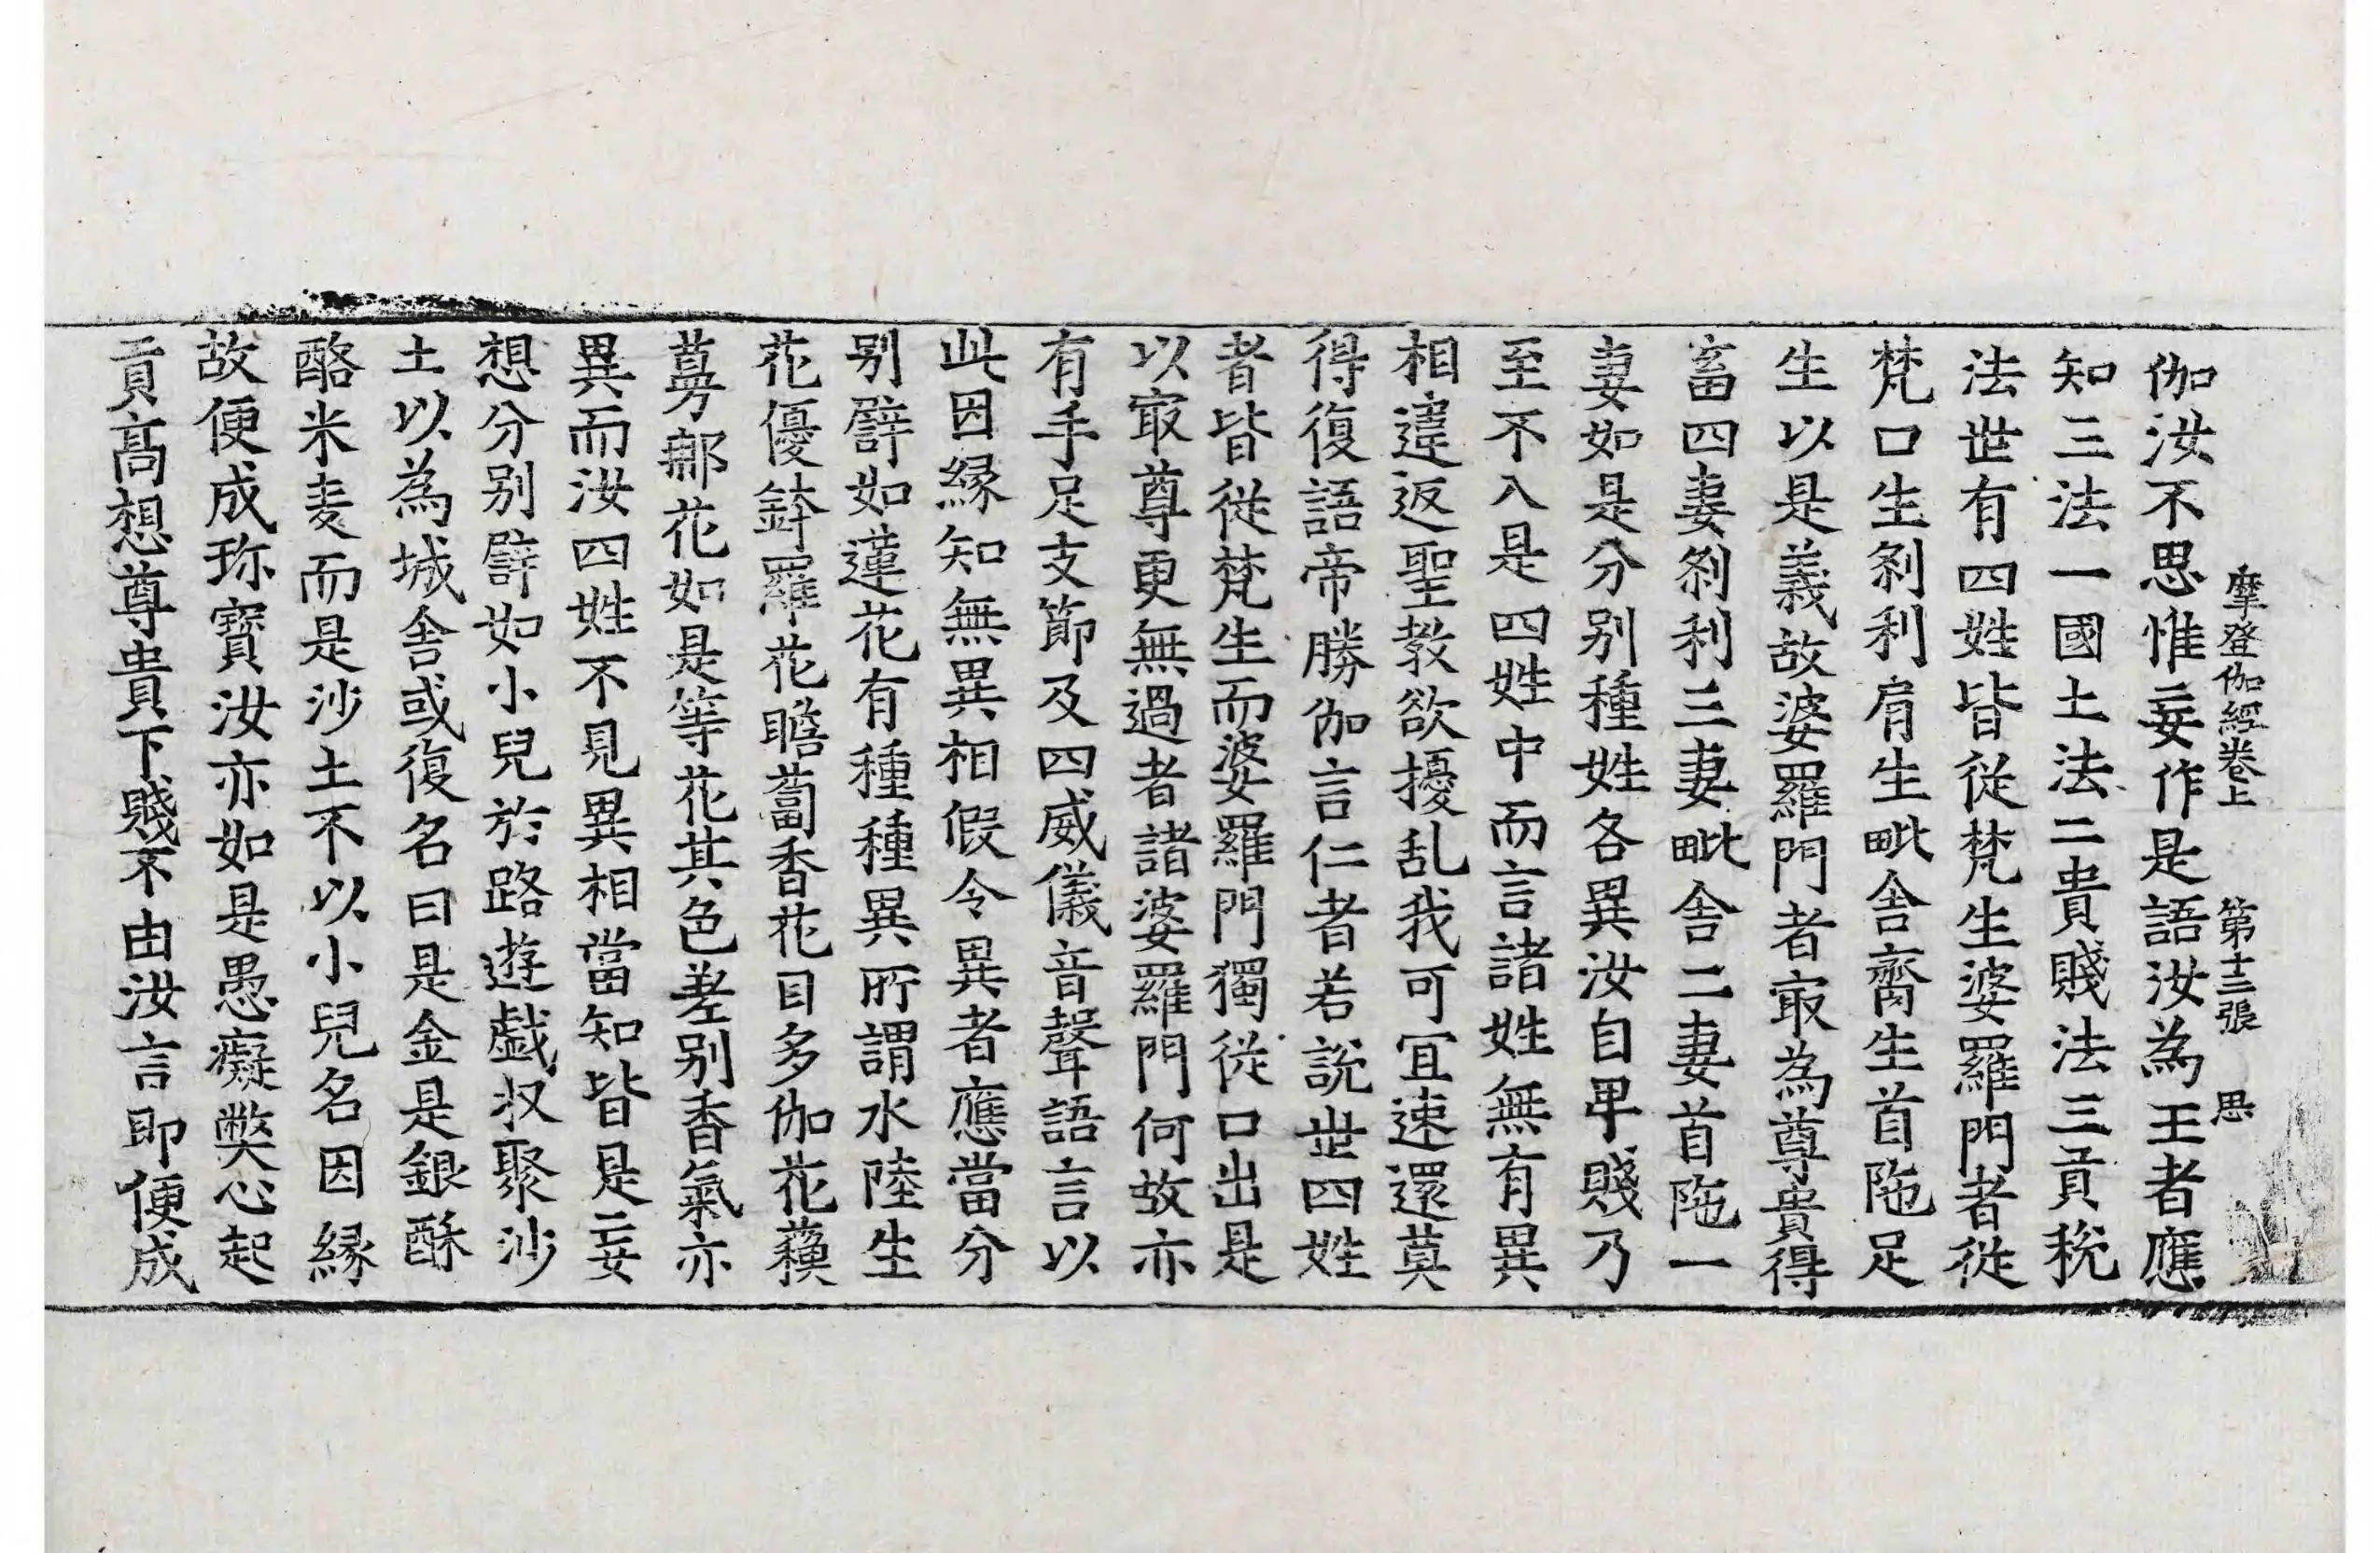 摩登伽經卷上　第十三張　思
伽汝不思惟妄作是語汝為王者應
知三法一國土法二貴賤法三貢稅
法世有四姓皆從梵生婆羅門者從
梵口生剎利肩生毗舍齋生首陁足
生以是義故婆羅門者㝡為尊貴得
畜四妻剎利三妻毗舍二妻首陁一
妻如是分别種姓各異汝自卑賤乃
至不入是四姓中而言諸姓無有異
相違返聖教欲擾乱我可宜速還莫
得復語帝勝伽言仁者若説世四姓
者皆從梵生而婆羅門獨從口出是
以㝡尊更無過者諸婆羅門何故亦
有手足支節及四威儀音聲語言以
此因緣知無異相假令異者應當分
别譬如蓮花有種種異所謂水陸生
花優鉢羅花瞻蔔香花目多伽花蘱
蒭那花如是等花其色差别香氣亦
異而汝四姓不見異相當知皆是妄
想分别譬如小兒於路遊戲収聚沙
土以為城舍或復名曰是金是銀酥
酪米麦而是沙土不以小兒名因緣
故便成珎寶汝亦如是愚癡弊心起
貢髙想尊貴下賤不由汝言即便成